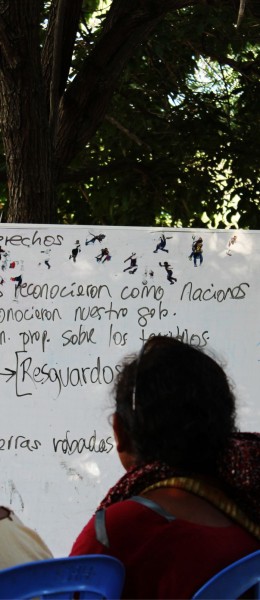 erechos
reconocieron como naciones
onocieron nuestro gob.
n. prop. sobre los
→[Resguardos
erras robadas